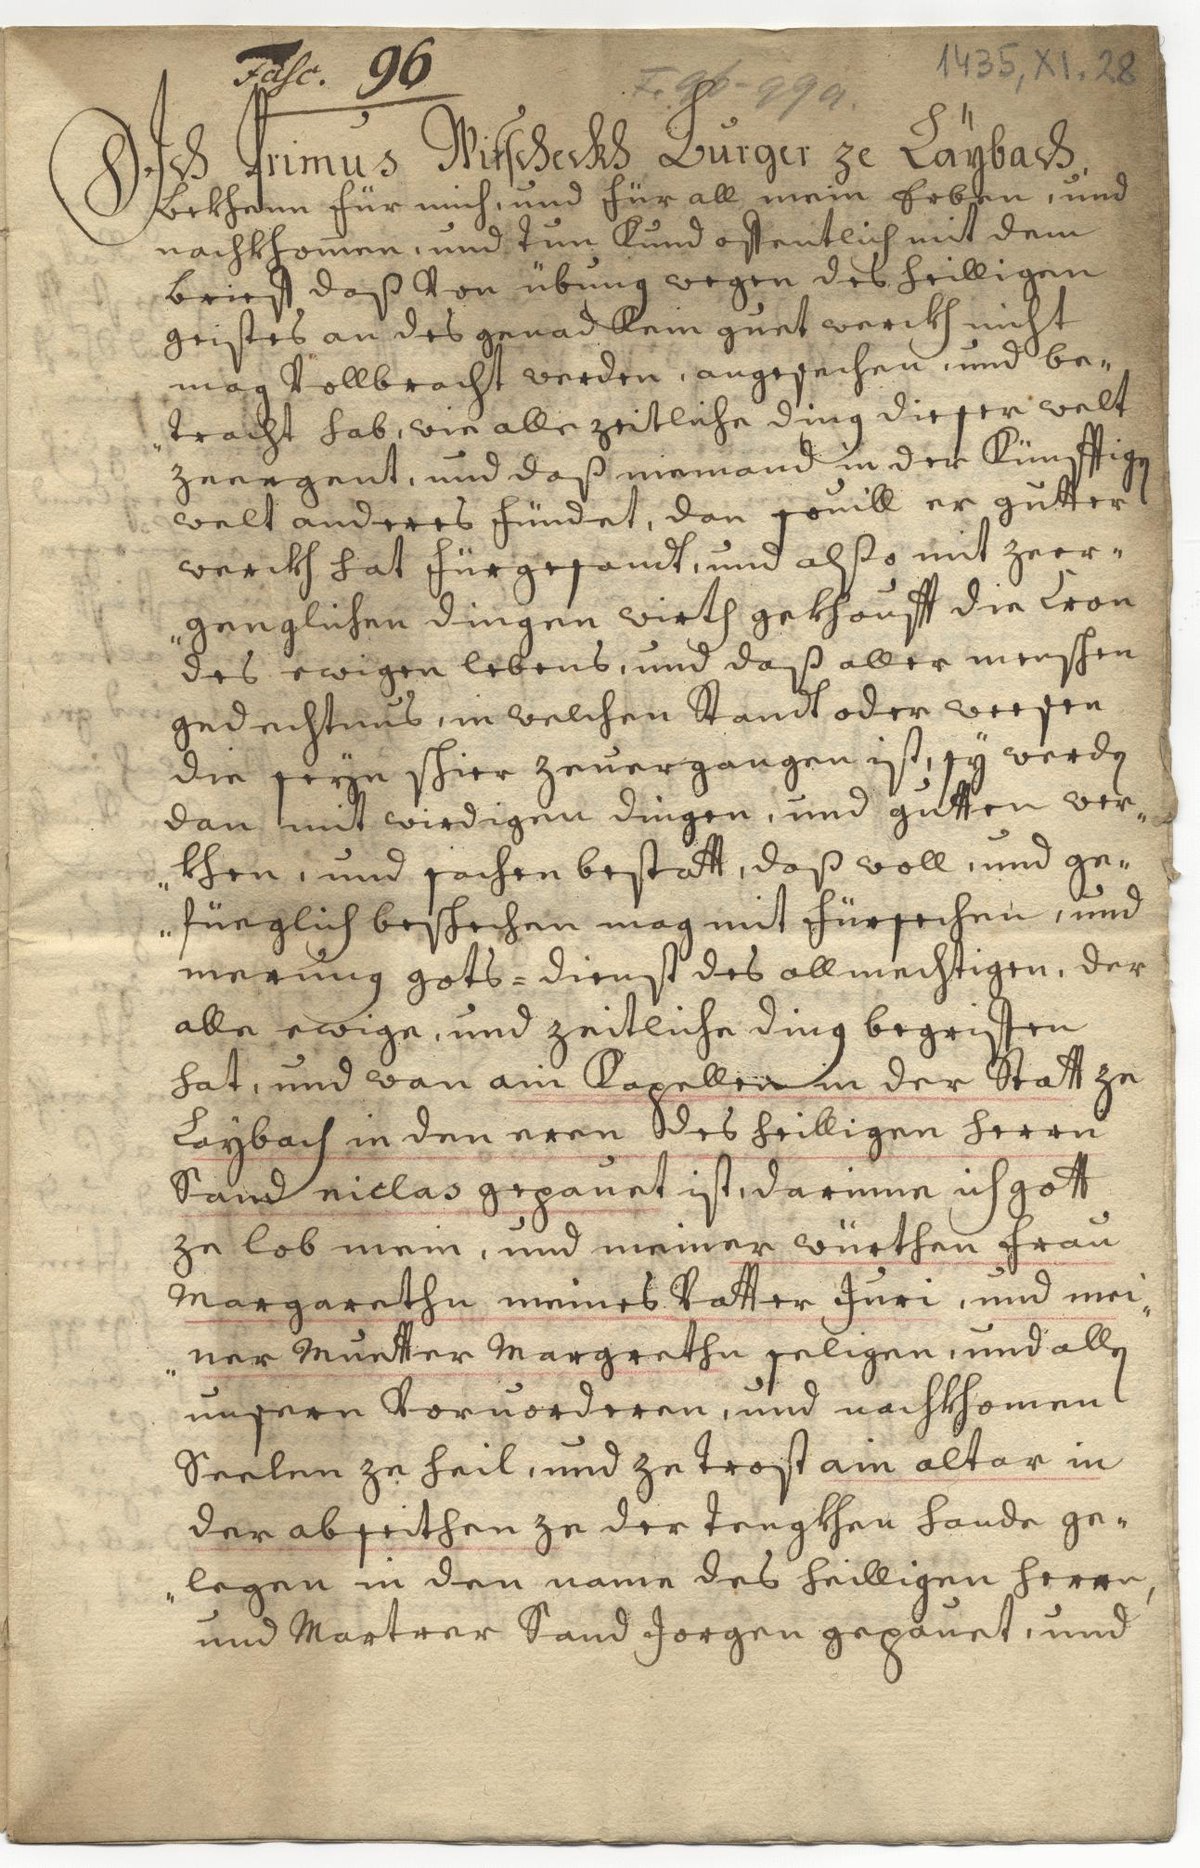 Fasc. 96
F. 96-99a.
1435, XI. 28
Ich Primus Burger ze Laÿbach,
bekhenn für mich, und für all mein Erben, und
nachkhomen, und tun Kund offentlich mit dem
brieff daß Von übung wegen des heilligen
geistes an des genad kein guet werckh nicht
mag Vollbracht werden, angesechen, und be-
"tracht hab, wie alle zeitliche ding dieser welt
zeergent, und daß niemand in der Künfftigen
welt anderes fündet, dan souill er gutter
werckh hat fürgesandt, und alßo mit zeer-
"genglichen dingen wirth gekhoufft die Cron
des ewigen lebens, und daß aller menschen
gedechtnus, in welchen Standt oder weesen
die seyn schier zeuergangen ist, sy werden
dan mit wirdigen dingen, und gutten wer-
"khen, und sachen bestatt, daß woll, und ge-
"füeglich beschechen mag mit fürsechen, und
merung gots=dienst des allmechtigen, der
alle ewige, und zeitliche ding begriffen
hat, und wan ain Kapellen in der Statt ze
Laybach in den eren des heilligen herrn
Sand niclas gepauet ist, darinne ich gott
ze lob mein, und meiner würthen frau
Margarethn meines Vatter Juri, und mei-
"ner Muetter Margrethn seligen, und allen
unsern Voruorderen, und nachkhomen
Seelen ze heil, und ze trost ain altar in
der abseithen ze der tengkhen hande ge-
"legen in den name des heilligen herrn,
und Martrer Sand Jorgen gepauet, und